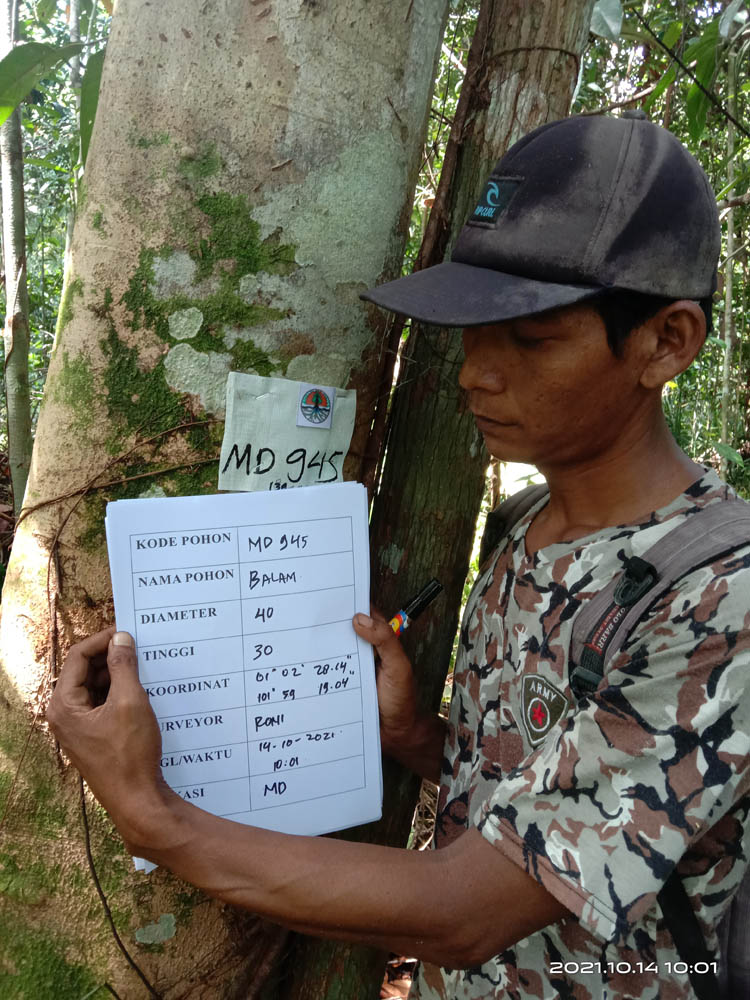 RIP CURL
MD 945
KODE POHON MD 945
NAMA POHON BALAM
DIAMETER 40
TINGGI 30
KOORDINAT 01° 02' 28.14"
101° 59 19.04"
SURVEYOR RONI
GL/WAKTU 14-10-2021
10:01
ASI MD
ARMY
2021.10.14 10:01